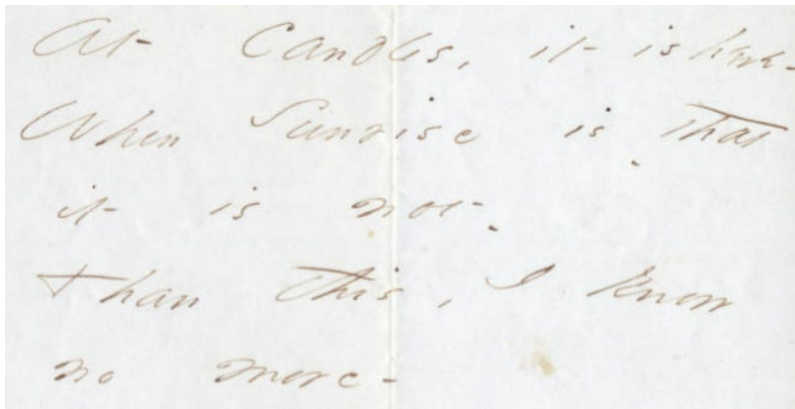 At Candles, it is
When Sunrise is - that
it is not -
Than this, I know
no more -